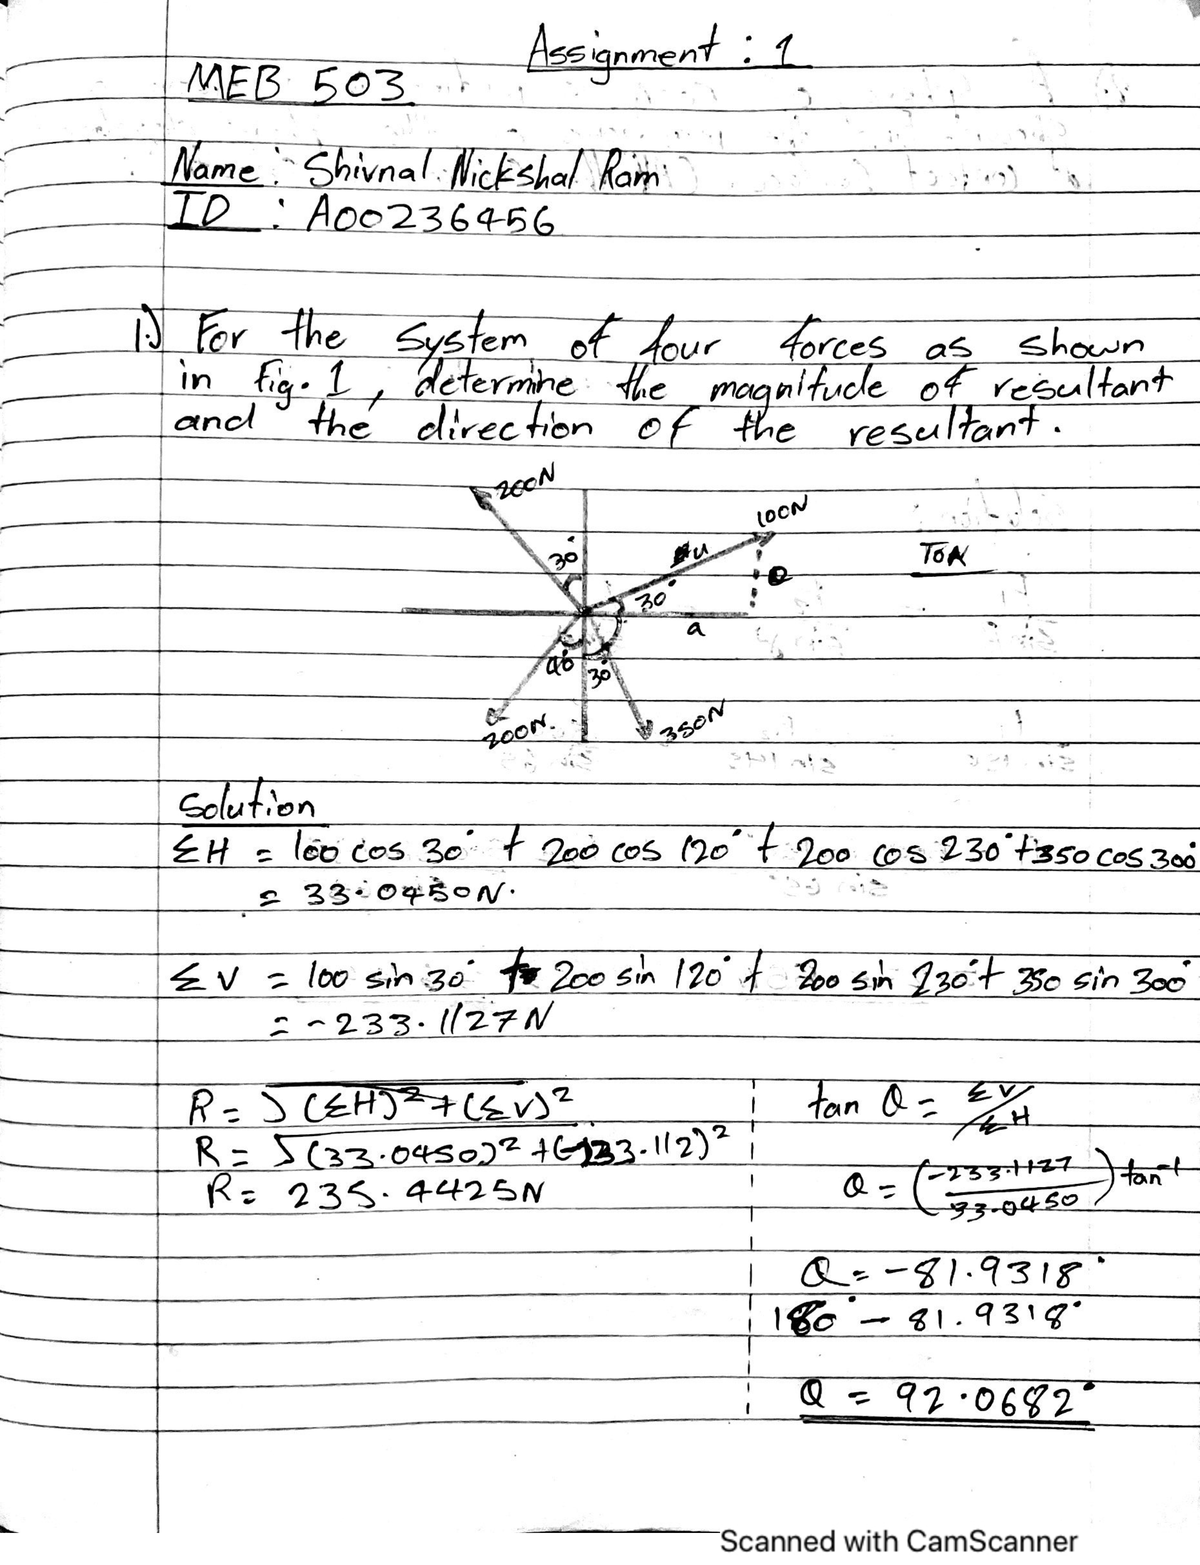 Assignment : 1
MEB 503
Name : Shivnal Nickshal Ram
ID : A00236456
1.) For the system of four forces as shown
in fig. 1, determine the magnitude of resultant
and the direction of the resultant.
200N
100N
30°
u
TOA
30°
a
40 30°
200N.
350N
Solution
ΣH = 100 cos 30° + 200 cos 120° + 200 cos 230° + 350 cos 300°
= 33.0450N.
ΣV = 100 sin 30° + 200 sin 120° + 200 sin 230° + 350 sin 300°
= -233.1127N
R = √(ΣH)² + (ΣV)²
tan Q = ΣV/ΣH
R = √(33.0450)² + (-233.112)²
Q = (-233.1127/33.0450) tan⁻¹
R = 235.4425N
Q = -81.9318°
180° - 81.9318°
Q = 92.0682°
Scanned with CamScanner